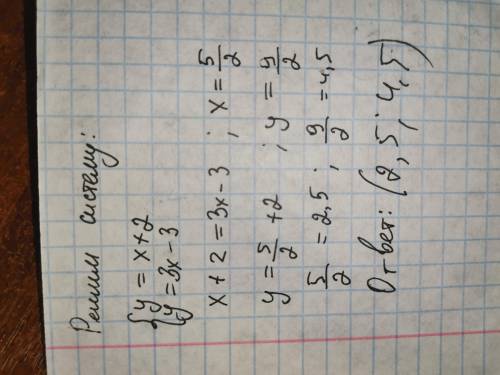 Решим систему:
{y = x+2
{y = 3x-3
x + 2 = 3x - 3 ; x = 5/2
y = 5/2 + 2 ; y = 9/2
5/2 = 2,5 ; 9/2 = 4,5
Ответ: (2,5; 4,5)